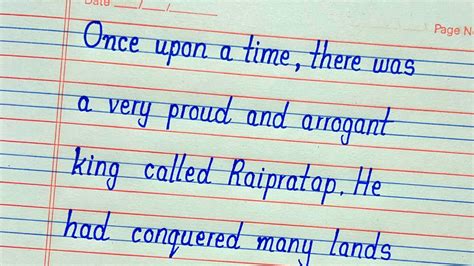 Date __/__/__
Page N
Once upon a time, there was
a very proud and arrogant
king called Raipratap. He
had conquered many lands